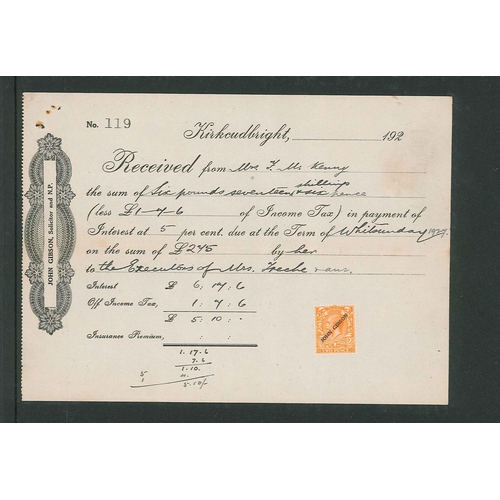 No. 119
Kirkcudbright, 192
Received from Mrs
shillings
the sum of Six pounds seventeen & six pence
(less £1-7-6 of Income Tax) in payment of
Interest at 5 per cent. due at the Term of Whitsunday 1927
on the sum of £245 by her
to the Executors of Mrs.
Interest £ 6, 17: 6
Off Income Tax, 1: 7: 6
£ 5: 10: -
Insurance Premium, : :
1. 17. 6
7. 6
1. 10.
5
1
5. 10/-
JOHN GIBSON, Solicitor and N.P.
JOHN GIBSON
TWO PENCE